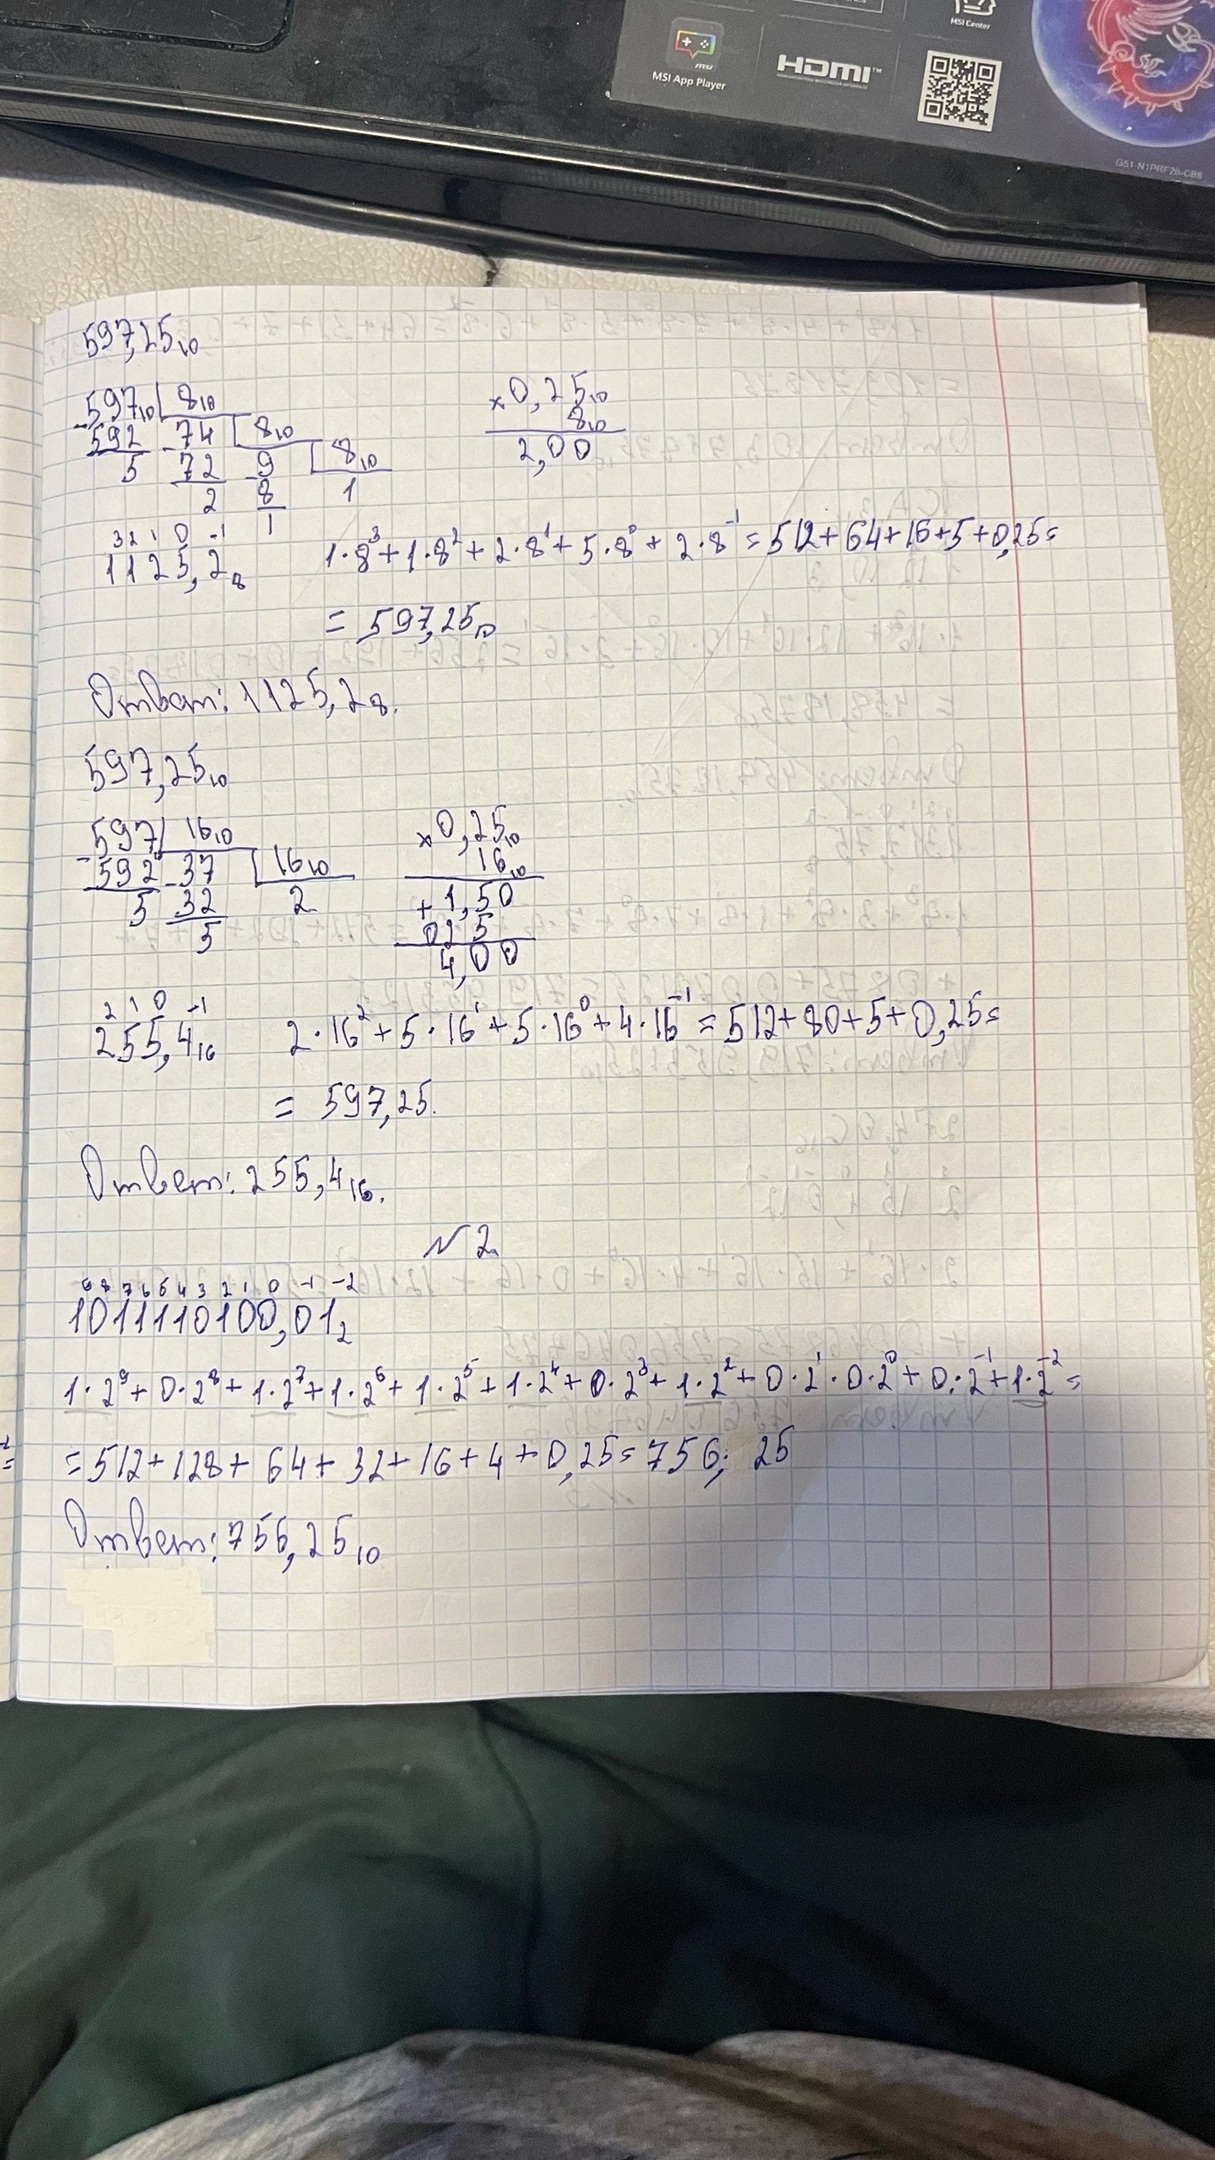 MSI Center
MSI App Player
HDMI™
G51-N1PRF26-CB8
597,25₁₀
597₁₀ 8₁₀ ×0,25₁₀
-592 -74 8₁₀ 8₁₀
5 72 -9 8₁₀ 2,00
2 8 1
1
3 2 1 0 -1
1125,2₈ 1·8³+1·8²+2·8¹+5·8⁰+2·8⁻¹=512+64+16+5+0,25=
= 597,25₁₀
Ответ: 1125,2₈.
597,25₁₀
597 16₁₀ ×0,25₁₀
-592 -37 16₁₀ 16₁₀
5 32 2 +1,50
5 025
4,00
2 1 0 -1
255,4₁₆ 2·16²+5·16¹+5·16⁰+4·16⁻¹=512+80+5+0,25=
= 597,25.
Ответ: 255,4₁₆.
№2
9 8 7 6 5 4 3 2 1 0 -1 -2
1011110100,01₂
1·2⁹+0·2⁸+1·2⁷+1·2⁶+1·2⁵+1·2⁴+0·2³+1·2²+0·2¹·0·2⁰+0·2⁻¹+1·2⁻²=
=512+128+64+32+16+4+0,25=756,25
Ответ: 756,25₁₀